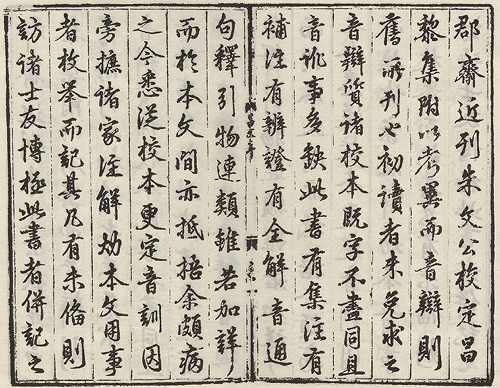 郡齋近刊朱文公校定昌
黎集附以考異而音辯則
舊所刊也初讀者未免求之
音辯質諸校本既字不盡同且
音訛事多缺此書有集注有
補注有辨證有全解音通
句釋引物連類雖若加詳
而於本文間亦抵捂余頗病
之今悉従校本更定音訓因
旁摭諸家注解劾本文用事
者枚舉而記其凡有未俻則
訪諸士友博極此書者併記之